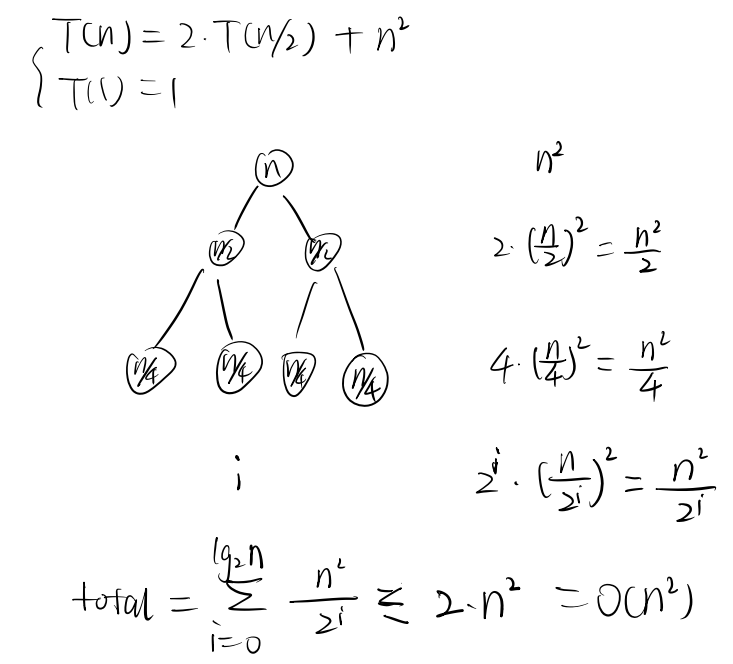 T(n) = 2·T(n/2) + n²
T(1) = 1
n
n²
n/2 n/2
2·(n/2)² = n²/2
n/4 n/4 n/4 n/4
4·(n/4)² = n²/4
i
2^i·(n/2^i)² = n²/2^i
total = ∑_{i=0}^{lg₂n} n²/2^i ≤ 2·n² = O(n²)